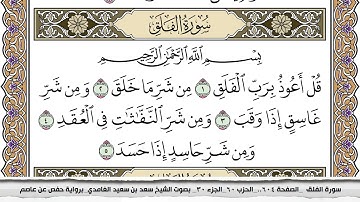 سُورَةُ الْفَلَقِ
بِسْمِ اللَّهِ الرَّحْمَٰنِ الرَّحِيمِ
قُلْ أَعُوذُ بِرَبِّ الْفَلَقِ ١ مِن شَرِّ مَا خَلَقَ ٢ وَمِن شَرِّ
غَاسِقٍ إِذَا وَقَبَ ٣ وَمِن شَرِّ النَّفَّاثَاتِ فِي الْعُقَدِ ٤
وَمِن شَرِّ حَاسِدٍ إِذَا حَسَدَ ٥
سورة الفلق _الصفحة ٦٠٤_ الحزب ٦٠_الجزء ٣٠_ بصوت الشيخ سعد بن سعيد الغامدي_ برواية حفص عن عاصم